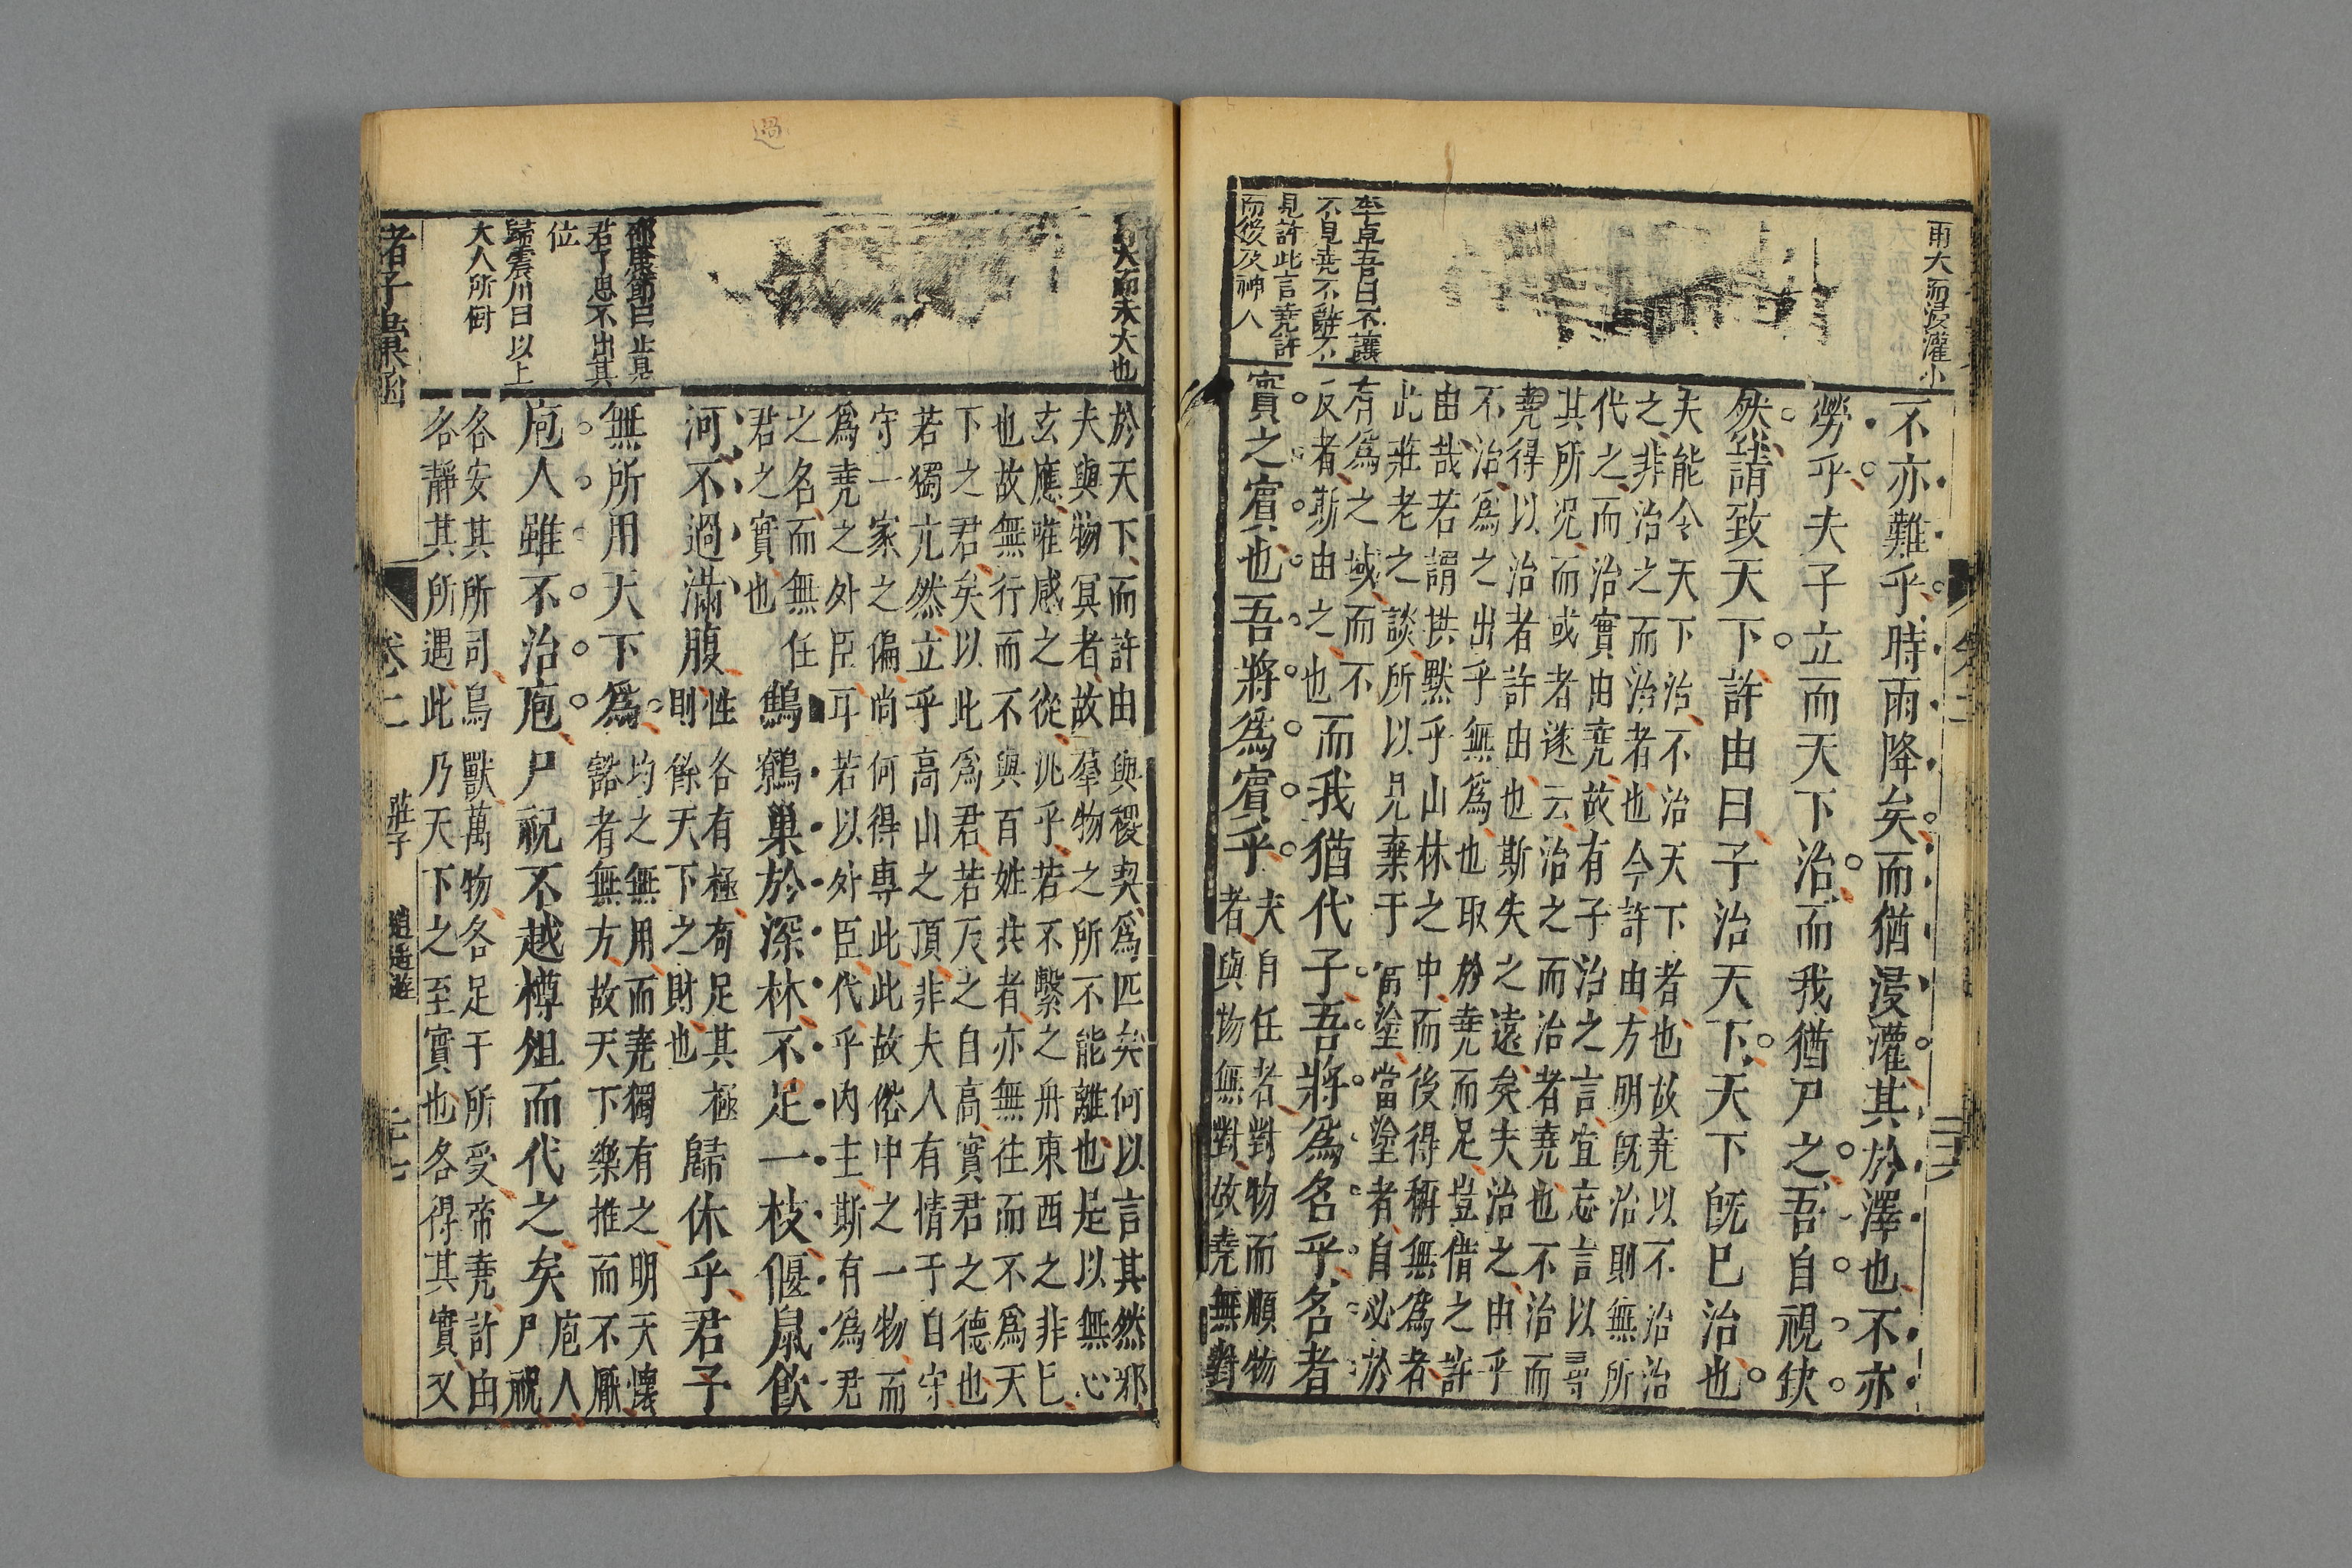 雨大而浸灌小
不亦難乎時雨降矣而猶浸灌其於澤也不亦
勞乎夫子立而天下治而我猶尸之吾自視缺
然請致天下許由曰子治天下天下既已治也
夫能令天下治不治天下者也故堯以不治治
之非治之而治者也今許由方明既治則無所
代之而治實由堯故有子治之言宜忘言以尋
其所況而或者遂云治之而治者堯也不治而
堯得以治者許由也斯失之遠矣夫治之由乎
不治爲之出乎無爲也取於堯而足豈借之許
由哉若謂拱默乎山林之中而後得稱無爲者
此莊老之談所以見棄于當塗當塗者自必於
有爲之域而不
反者斯由之也
而我猶代子吾將爲名乎名者
實之賓也吾將爲賓乎
夫自任者對物而順物
者與物無對故堯無對
李卓吾曰不讓
不見堯不難
見許此言堯許
而後及神人
卷二
二十六
大而未大也
於天下而許由與稷契爲匹矣何以言其然邪
夫與物冥者故羣物之所不能離也是以無心
玄應唯感之從汎乎若不繫之舟東西之非已
也故無行而不與百姓共者亦無往而不爲天
下之君矣以此爲君若天之自高實君之德也
若獨亢然立乎高山之頂非夫人有情于自守
守一家之偏尚何得專此此故俗中之一物而
爲堯之外臣耳若以外臣代乎内主斯有爲君
之名而無任
君之實也
鷦鷯巢於深林不足一枝偃鼠飲
河不過滿腹
性各有極苟足其極
則餘天下之財也
歸休乎君子
無所用天下爲
均之無用而堯獨有之明天懷
豁者無方故天下樂推而不厭
庖人雖不治庖尸祝不越樽俎而代之矣
庖人
尸祝
各安其所司鳥獸萬物各足于所受帝堯許由
各靜其所遇此乃天下之至實也各得其實又
邵康節曰止見
君子思不出其
位
歸震川曰以上
大人所樹
諸子彙函
卷二
莊子
逍遙遊
二十七
過